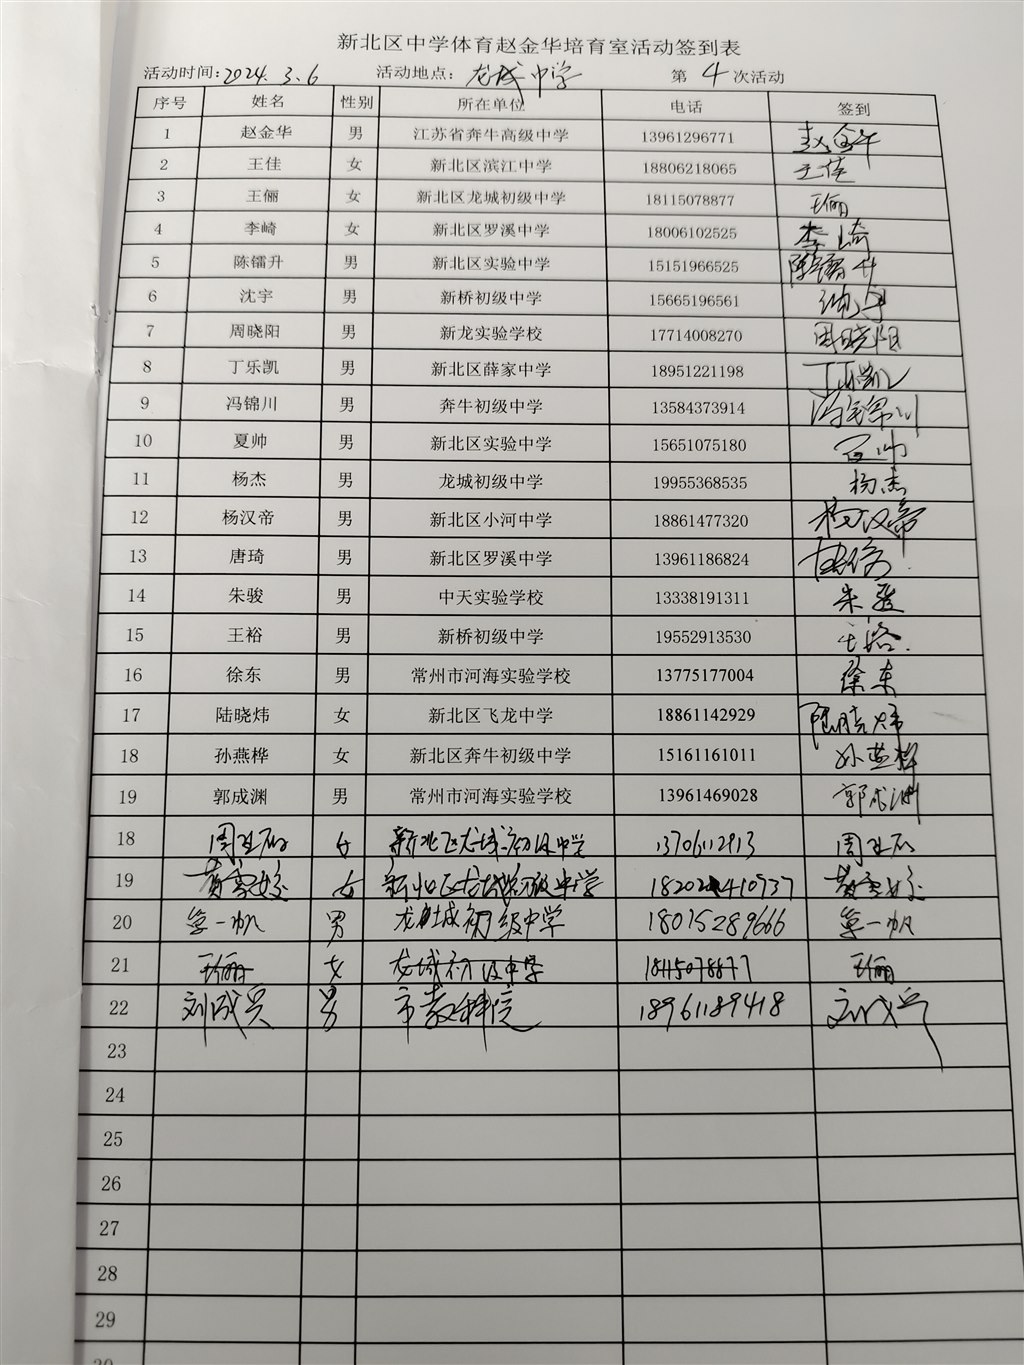 新北区中学体育赵金华培育室活动签到表
活动时间:2024.3.6 活动地点：龙城中学 第 4 次活动
序号 姓名 性别 所在单位 电话 签到
1 赵金华 男 江苏省奔牛高级中学 13961296771 赵金华
2 王佳 女 新北区滨江中学 18806218065 王佳
3 王俪 女 新北区龙城初级中学 18115078877 王俪
4 李崎 女 新北区罗溪中学 18006102525 李崎
5 陈镭升 男 新北区实验中学 15151966525 陈镭升
6 沈宇 男 新桥初级中学 15665196561 沈宇
7 周晓阳 男 新龙实验学校 17714008270 周晓阳
8 丁乐凯 男 新北区薛家中学 18951221198 丁乐凯
9 冯锦川 男 奔牛初级中学 13584373914 冯锦川
10 夏帅 男 新北区实验中学 15651075180 夏帅
11 杨杰 男 龙城初级中学 19955368535 杨杰
12 杨汉帝 男 新北区小河中学 18861477320 杨汉帝
13 唐琦 男 新北区罗溪中学 13961186824 唐琦
14 朱骏 男 中天实验学校 13338191311 朱骏
15 王裕 男 新桥初级中学 19552913530 王裕
16 徐东 男 常州市河海实验学校 13775177004 徐东
17 陆晓炜 女 新北区飞龙中学 18861142929 陆晓炜
18 孙燕桦 女 新北区奔牛初级中学 15161161011 孙燕桦
19 郭成渊 男 常州市河海实验学校 13961469028 郭成渊
18 女 新北区龙城初级中学 13706112913
19 女 新北区龙城初级中学
20 男 龙城初级中学 18015289666
21 王俪 女 龙城初级中学 18115078877 王俪
22 刘成兵 男 市教科院 18961189418 刘成兵
23
24
25
26
27
28
29
30